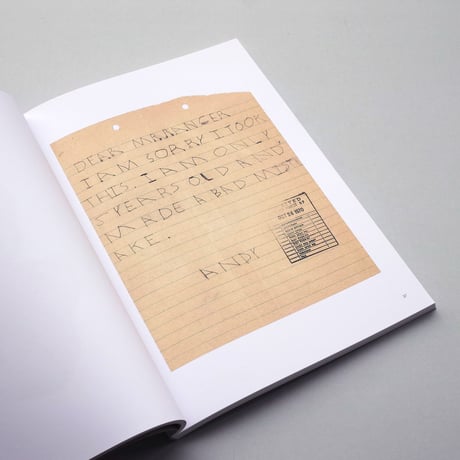 DEAR MR RANGER
I AM SORRY I TOOK
THIS. I AM ONLY
5 YEARS OLD AND
I MADE A BAD MIST
AKE.
ANDY